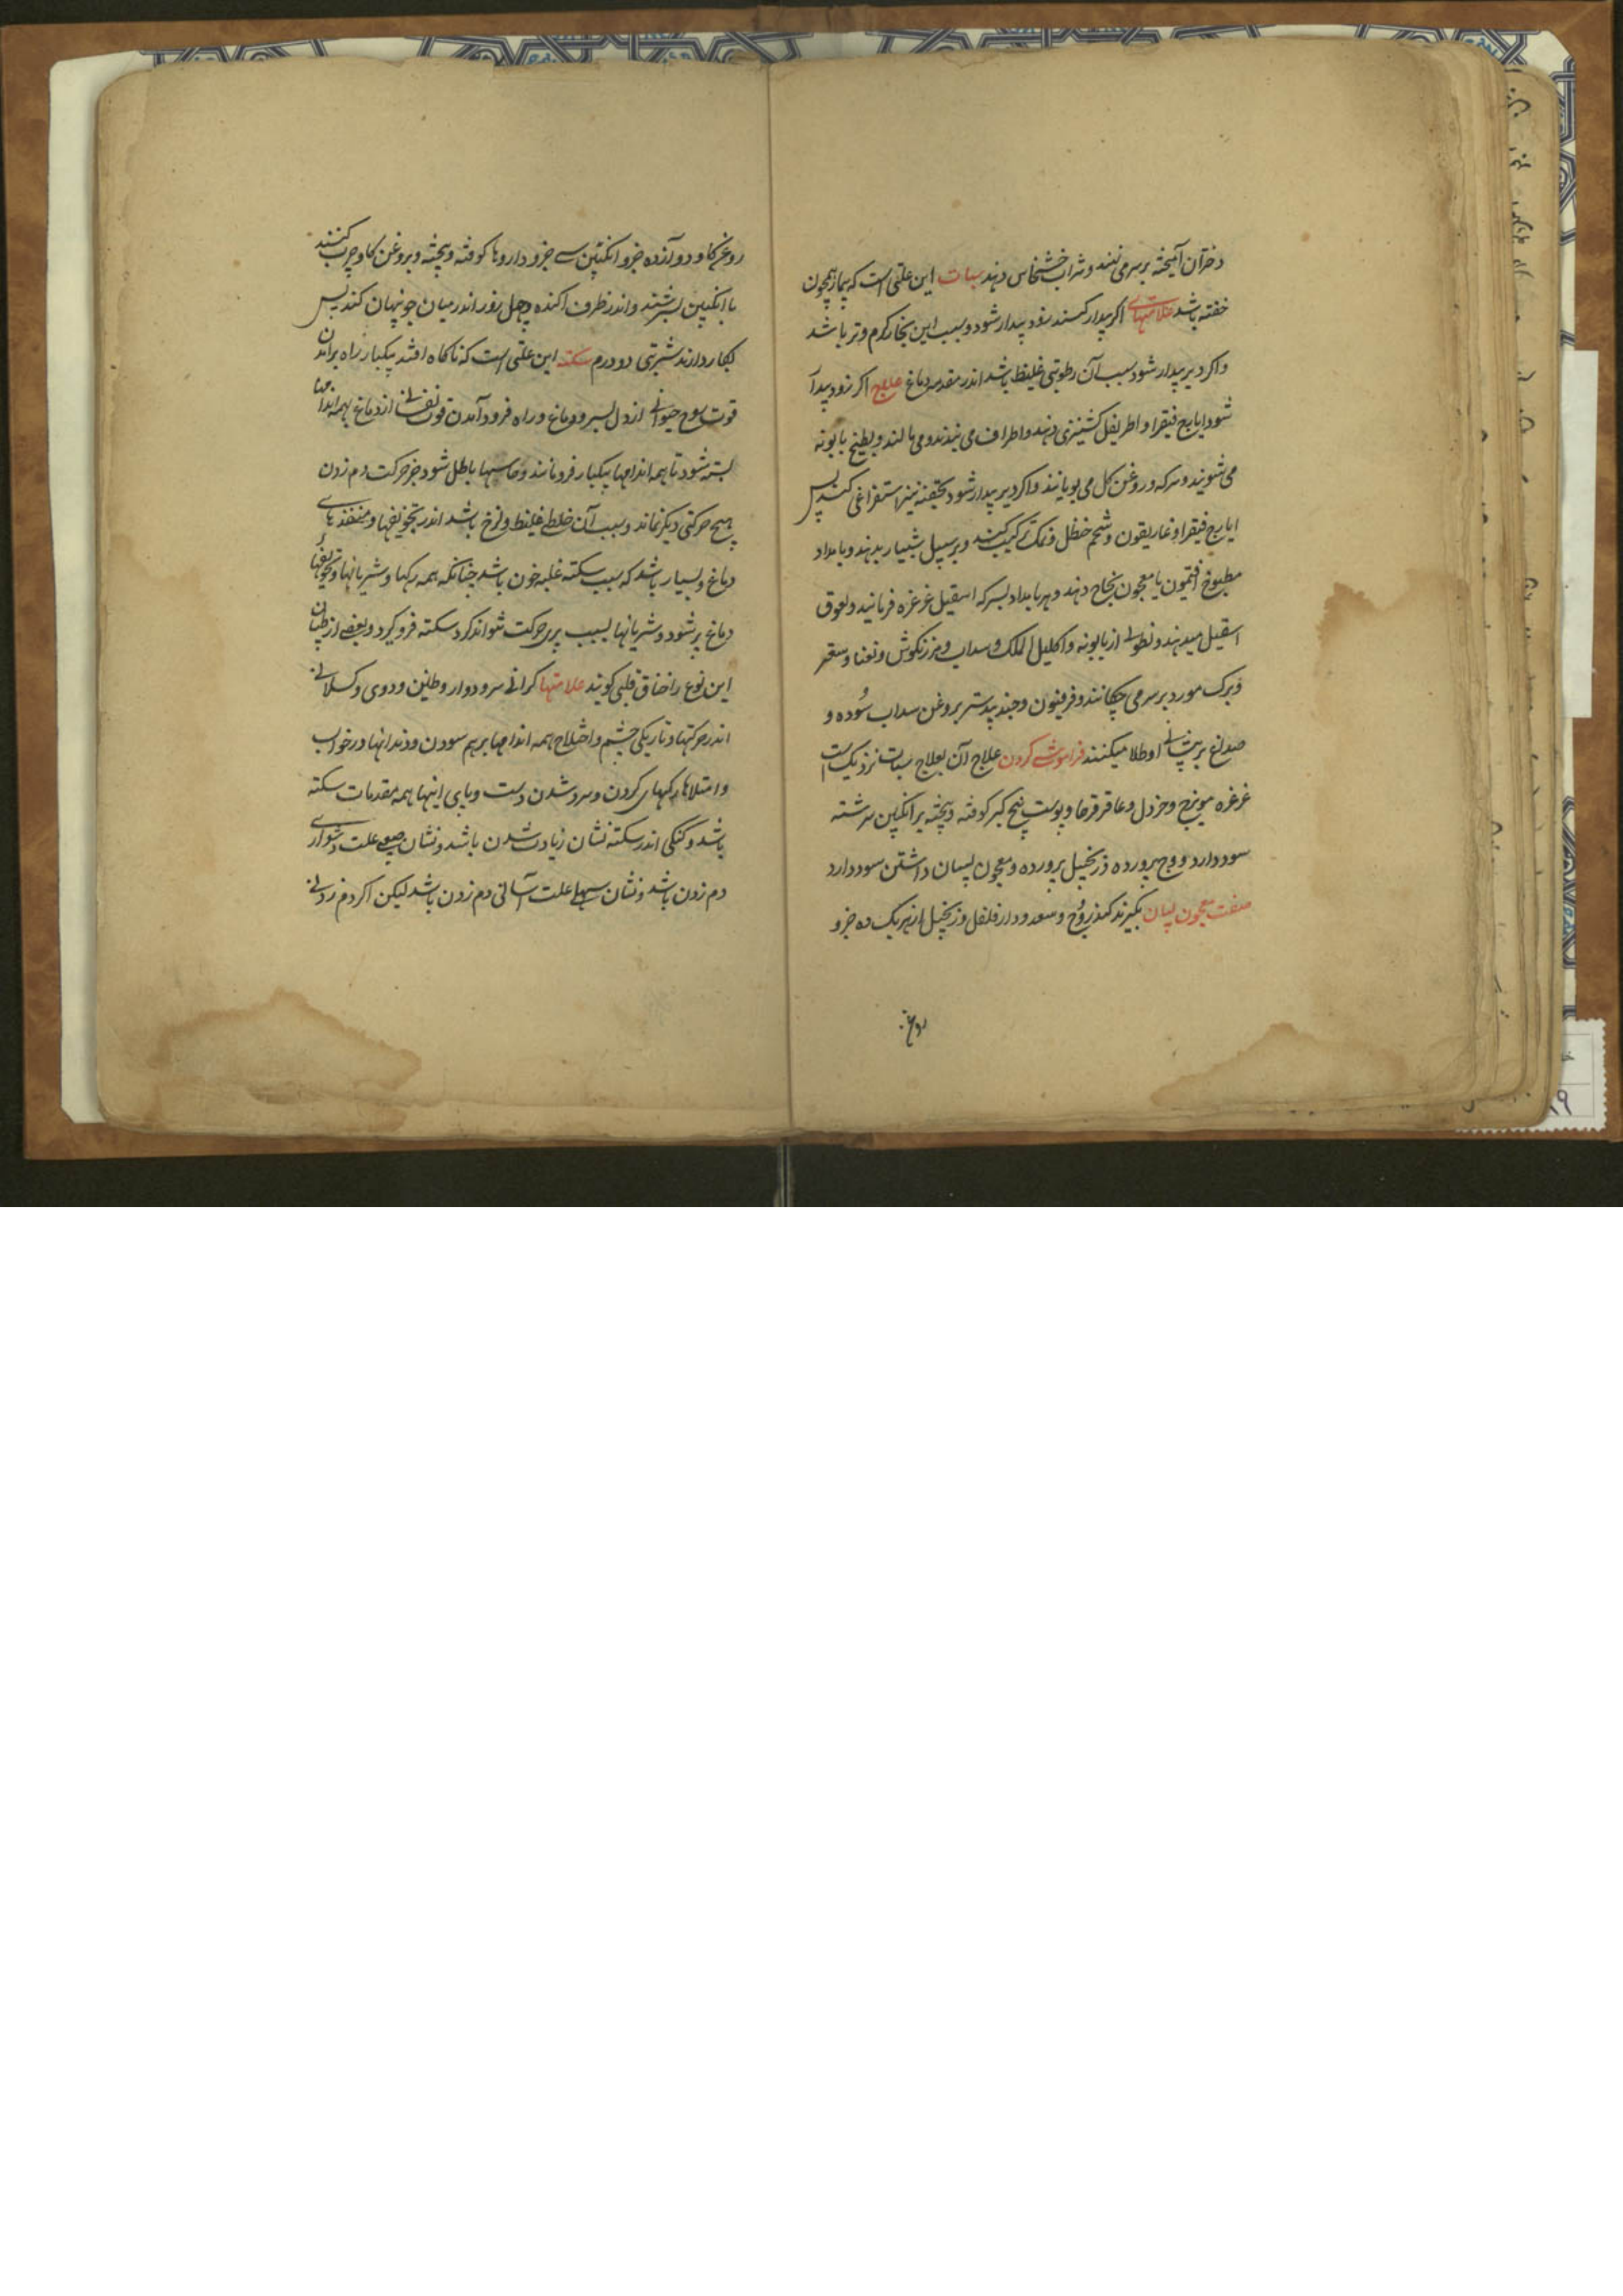 دختران آمیخته بر سر می نهند و شراب خشخاش دهند سبات این علتی است که بیمار همچون
خفته باشد علامتهای اکر بیدار کنند زود بیدار شود و سبب این بخار کرم و تر باشد
و اکر دیر بیدار شود سبب آن رطوبتی غلیظ باشد اندر مقدم دماغ علاج اکر زود بیدار
شود ایارج فیقرا و اطریفل کشنیزی دهند و اطراف می بندند و می مالند و بطبیخ بابونه
می شویند و سرکه و روغن کل می بویانند و اکر دیر بیدار شود بحقنه تیز استفراغی کنند پس
ایارج فیقرا و غاریقون و شحم حنظل و نمک ترکیب کنند و بر سبیل شبیار بدهند و بامداد
مطبوخ افتیمون یا معجون نجاح دهند و هر بامداد بسرکه اسقیل غرغره فرمایند و لعوق
اسقیل میدهند و نطولی از بابونه و اکلیل الملک و سداب و مرزنکوش و نعنا و سعتر
و برک مورد بر سر می چکانند و فرفیون و جند بیدستر بروغن سداب سُوده و
صدغ بر پیشانی او طلا میکنند فراموشی کردن علاج آن بعلاج سبات نزدیک است
غرغره مویزج و خردل و عاقرقرحا و پوست بیخ کبر کوفته و بیخته بر انکبین سرشته
سود دارد و وج پرورده و زنجبیل پرورده و معجون لبان داشتن سود دارد
صفت معجون لبان بکیرند کندر و وج و سعد و دارفلفل و زنجبیل از هر یک ده جزو
روغن
روغن کاو دوازده جزو انکبین سی جزو داروها کوفته و بیخته و بروغن کاو چرب کنند
با انکبین بسرشند و اندر ظرف اکنده و چهل روز اندر میان جو پنهان کنند پس
بکار دارند شربتی دو درم سکته این علتی است که ناکاه افتد بیکبار راه برآمدن
قوت روح حیوانی از دل بسر و دماغ و راه فرود آمدن قوت نفسانی از دماغ بهمه اندامها
بسته شود تا همه اندامها بیکبار فرو مانند و حاسها باطل شود جز حرکت دم زدن
هیچ حرکتی دیکر نماند و سبب آن خلط غلیظ و لزج باشد اندر تجویفها و منفذهای
دماغ و بسیار باشد که سبب سکته غلبه خون باشد چنانکه همه رکها و شریانها و تجویفهای
دماغ پر شود و شریانها بسبب پری حرکت نتواند کرد سکته فرو کیرد و بعضی از طبیبان
این نوع را خناق قلبی کویند علامتها کرانی سر و دوار و طنین و دوی و کسلانی
اندر حرکتها و تاریکی چشم و اختلاج همه اندامها بر هم سودن دندانها در خواب
و امتلاء رکهای کردن و سرد شدن دست و پای اینها همه مقدمات سکته
باشد و کنکی اندر سکته نشان زیادت شدن باشد و نشان صعبی علت دشواری
دم زدن باشد و نشان سهلی علت آسانی دم زدن باشد لیکن اکر دم زدنی